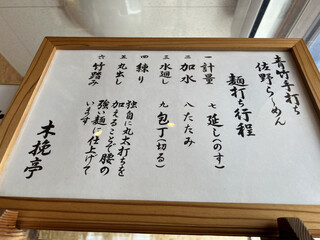 青竹手打ち
佐野らーめん
麺打ち行程
一 計量
二 加水
三 水廻し
四 練り
五 丸出し
六 竹踏み
七 延し(のす)
八 たたみ
九 包丁(切る)
独自に丸太打ちを
加えることで腰の
強い麺に仕上げて
います
木挽亭